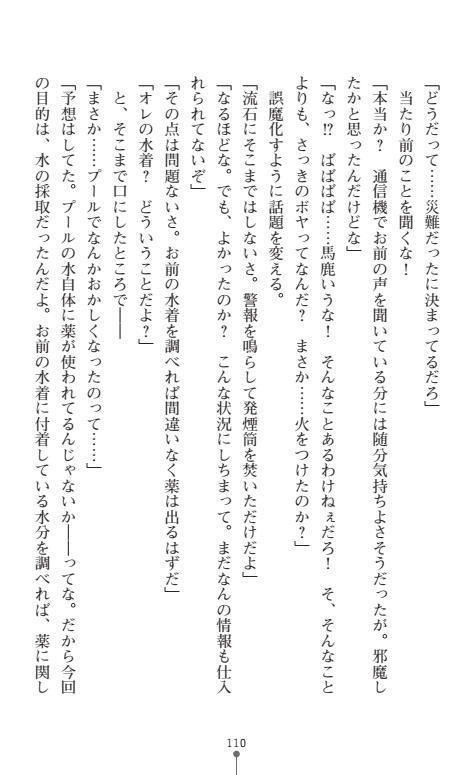 「どうだって……災難だったに決まってるだろ」
当たり前のことを聞くな！
「本当か？　通信機でお前の声を聞いている分には随分気持ちよさそうだったが。邪魔し
たかと思ったんだけどな」
「なっ!?　ばばばば……馬鹿いうな！　そんなことあるわけねぇだろ！　そ、そんなこと
よりも、さっきのボヤってなんだ？　まさか……火をつけたのか？」
誤魔化すように話題を変える。
「流石にそこまではしないさ。警報を鳴らして発煙筒を焚いただけだよ」
「なるほどな。でも、よかったのか？　こんな状況にしちまって。まだなんの情報も仕入
れられてないぞ」
「その点は問題ないさ。お前の水着を調べれば間違いなく薬は出るはずだ」
「オレの水着？　どういうことだよ？」
と、そこまで口にしたところで――
「まさか……プールでなんかおかしくなったのって……」
「予想はしてた。プールの水自体に薬が使われてるんじゃないか――ってな。だから今回
の目的は、水の採取だったんだよ。お前の水着に付着している水分を調べれば、薬に関し
110